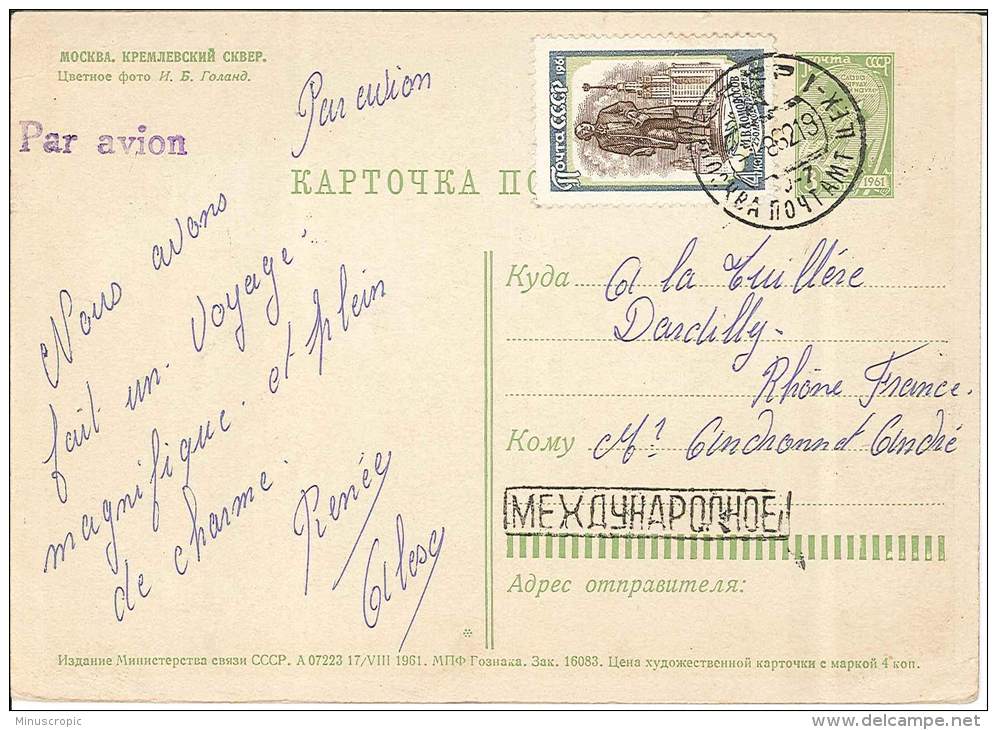 МОСКВА. КРЕМЛЕВСКИЙ СКВЕР.
Цветное фото И. Б. Голанд.
Par avion
Par avion
ПОЧТА СССР 1961
М.В. ЛОМОНОСОВ
4 КОП.
Почта СССР
1961
МОСКВА ПОЧТАМТ
КАРТОЧКА ПО
Nous avons
fait un voyage
magnifique et plein
de charme.
Renée
Куда A la Tuillére
Dardilly-
Rhône France.
Кому Mr Andronnat André
МЕЖДУНАРОДНОЕ
Адрес отправителя:
*
Издание Министерства связи СССР. А 07223 17/VIII 1961. МПФ Гознака. Зак. 16083. Цена художественной карточки с маркой 4 коп.
Minuscropic
delcampe.net